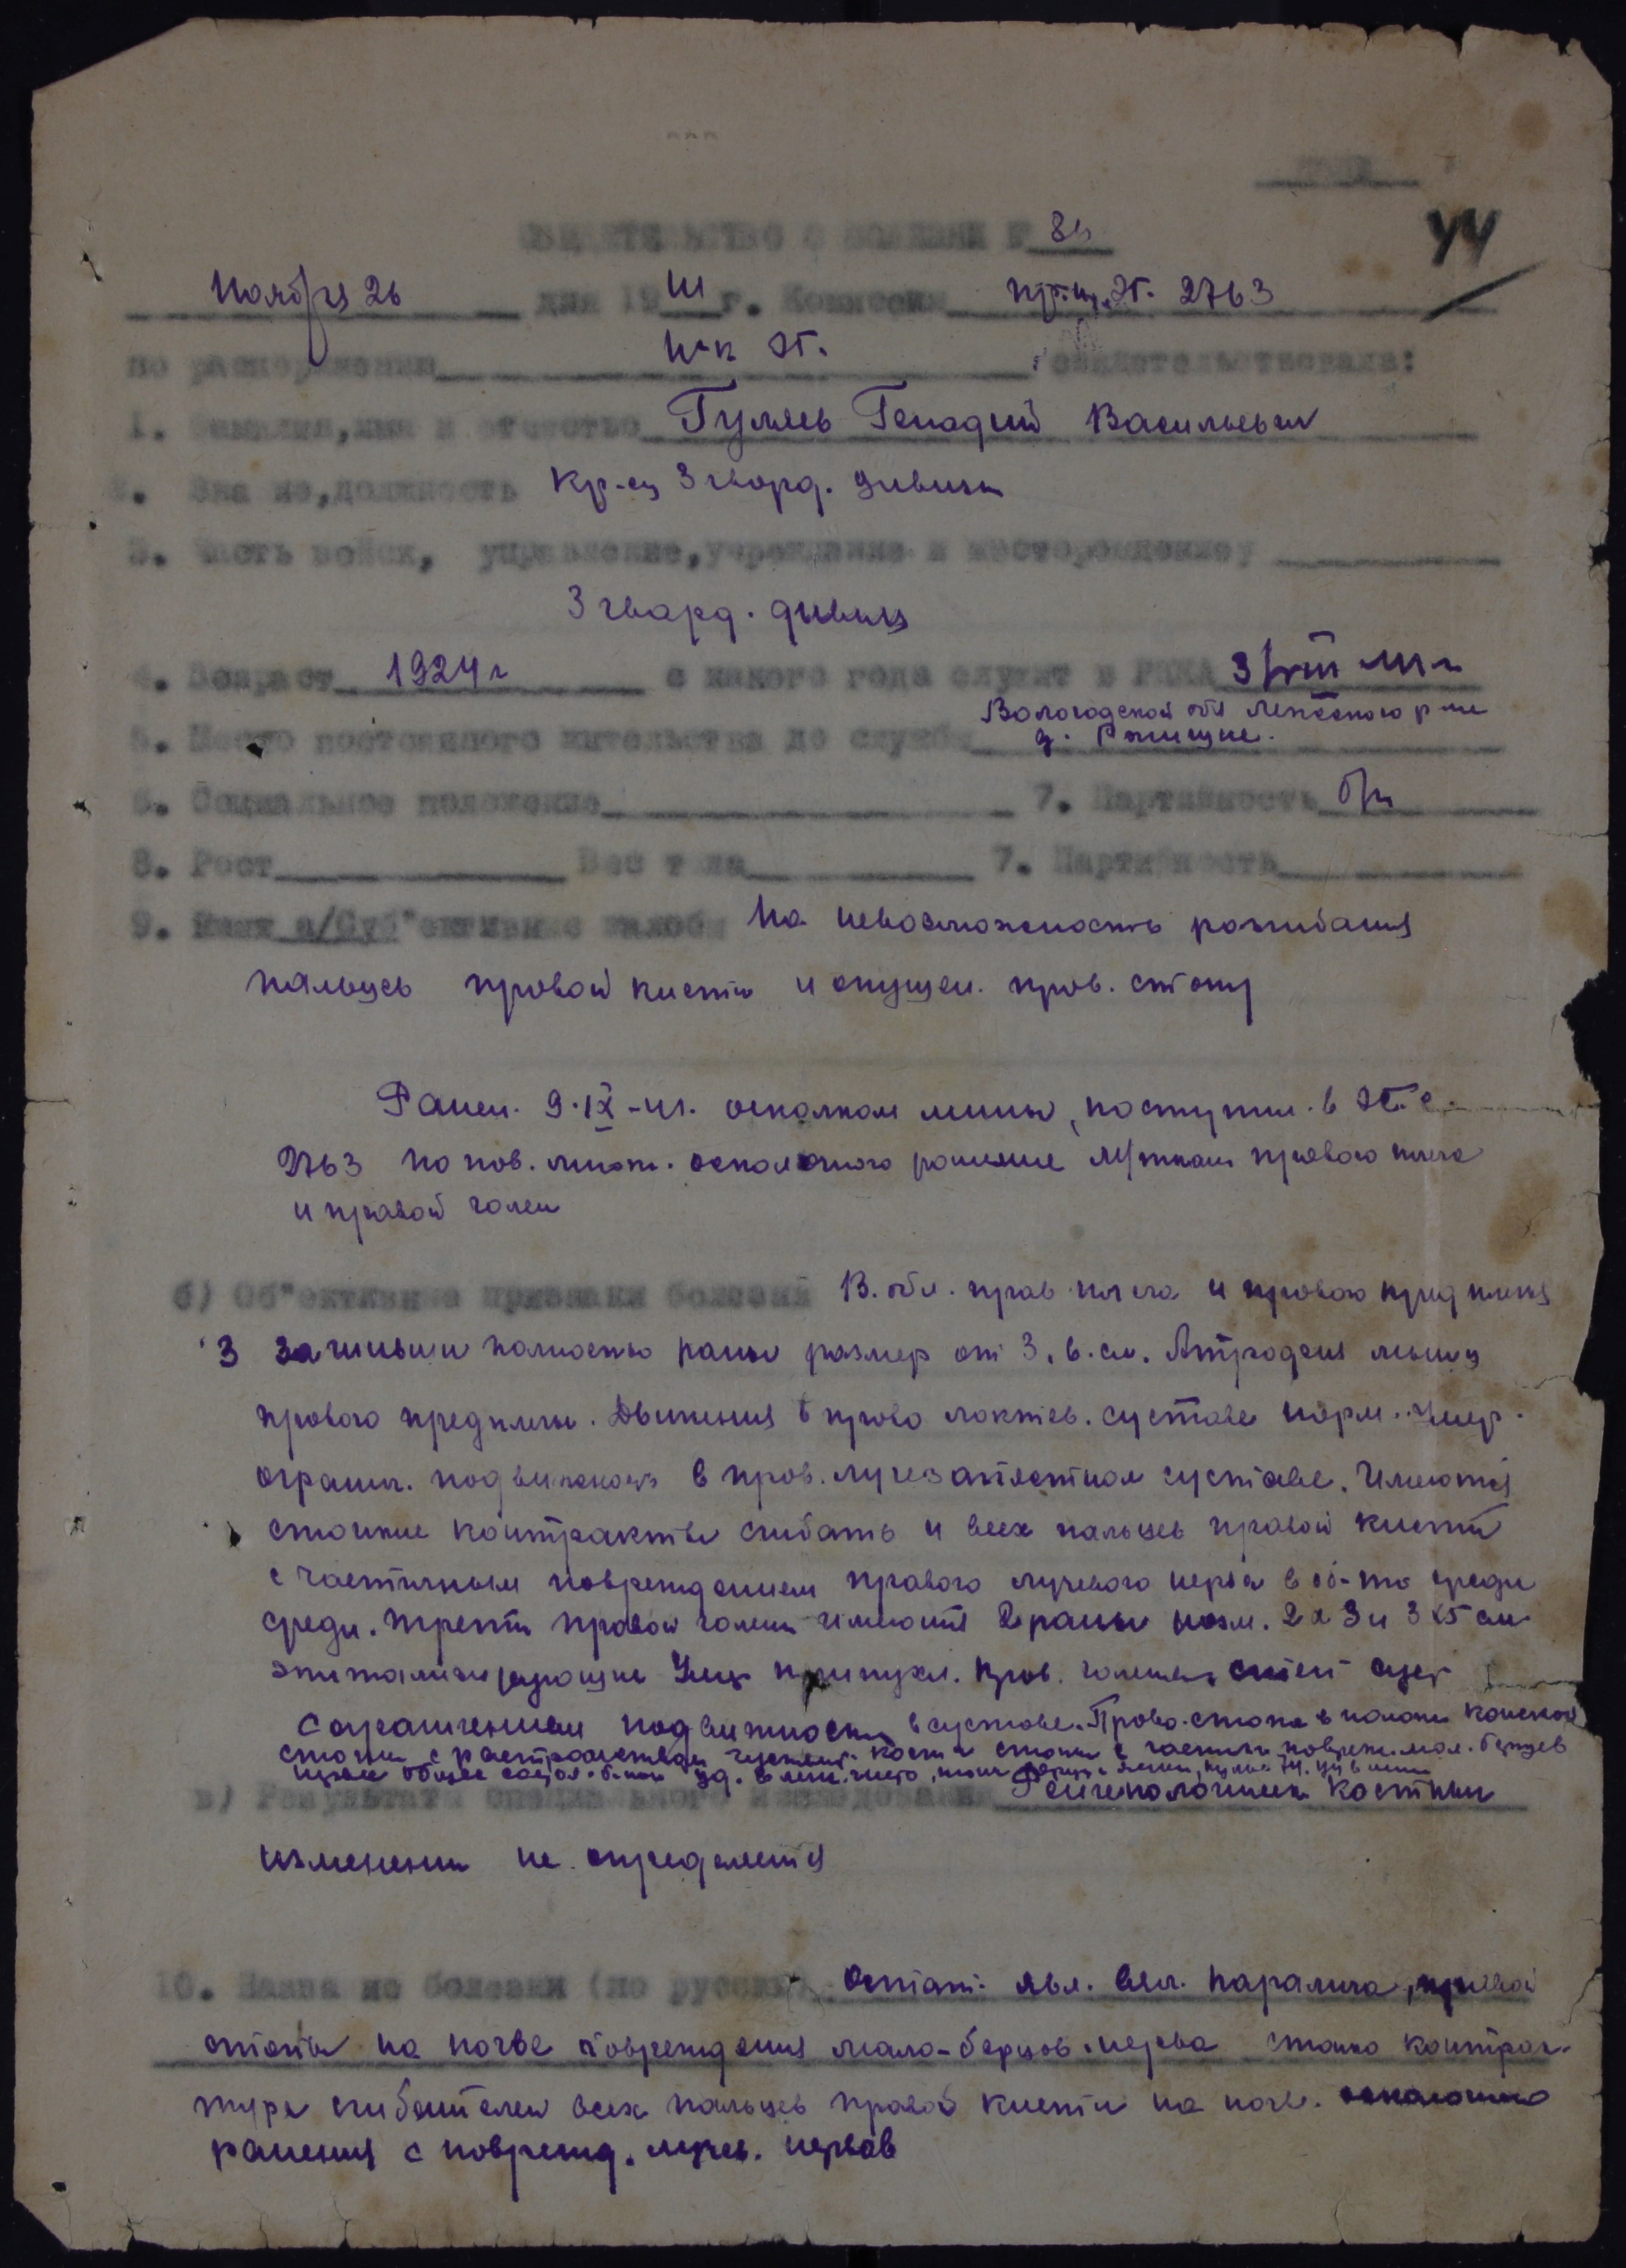 44
СВИДЕТЕЛЬСТВО О БОЛЕЗНИ №
Ноября 26 дня 19 41 г. Комиссия при эг. 2763
по распоряжению нач эг. свидетельствовала:
1. Фамилия, имя и отчество Гуляев Генадий Васильевич
2. Зва ие, должность Кр-ец 3 гвард. дивизи
3. Часть войск, управление, учреждение и месторождение
3 гвард. дивиз
4. Возраст 1924 г с какого года служит в РККА 3/VIII 41 г
Вологодской обл р-не
5. Место постоянного жительства до службы д.
6. Социальное положение 7. Партийность б/п
8. Рост Вес тела 7. Партийность
9. Ниях а/Суб"ективные жалобы На невозможность розгибания
пальцев провой кисти и опущен. пров. стопы
Ранен. 9.IX-41. осколком мины, поступил. в эг.
2763 по пов. множ. осколочного ранение м/ткани прового плеча
и правой голени
б) Об"ективные признаки болезни В. обл. прав плеча и прового предплечя
3 зажившии полностью раны размер от 3. 6. см. Атрофия мышц
прового предплечья. Движения в право локтев. суставе норм. Умер.
огранич. подвижность в пров. лучезапястном суставе. Имеются
стойкие контракты сгибать и всех пальцев правой кисти
с частичным повреждением правого лучевого нерва в об-то среди
средн. трети правой голени имеются 2 раны разм. 2х3 и 3х5 см
эпитализирующие Умер припухл. пров. голеност.
С ограничением подвижности в суставе. Права. стопа в полож конской
стопы с расстройством чуствит. кости стопы с частичн поврежд. мал. берцов
нерва общее состоя. больн уд.
в) Результаты специального исследования Рентгенологическ костных
изменении не определяется
10. Назва ие болезни (по русски) Остат. явл. вял. паралича правой
стопы на почве повреждения мало-берцов. нерва стойко контрак-
тура сгибателей всех пальцев правой кисти на почв. осколочно
ранения с поврежд. лучев. нервов